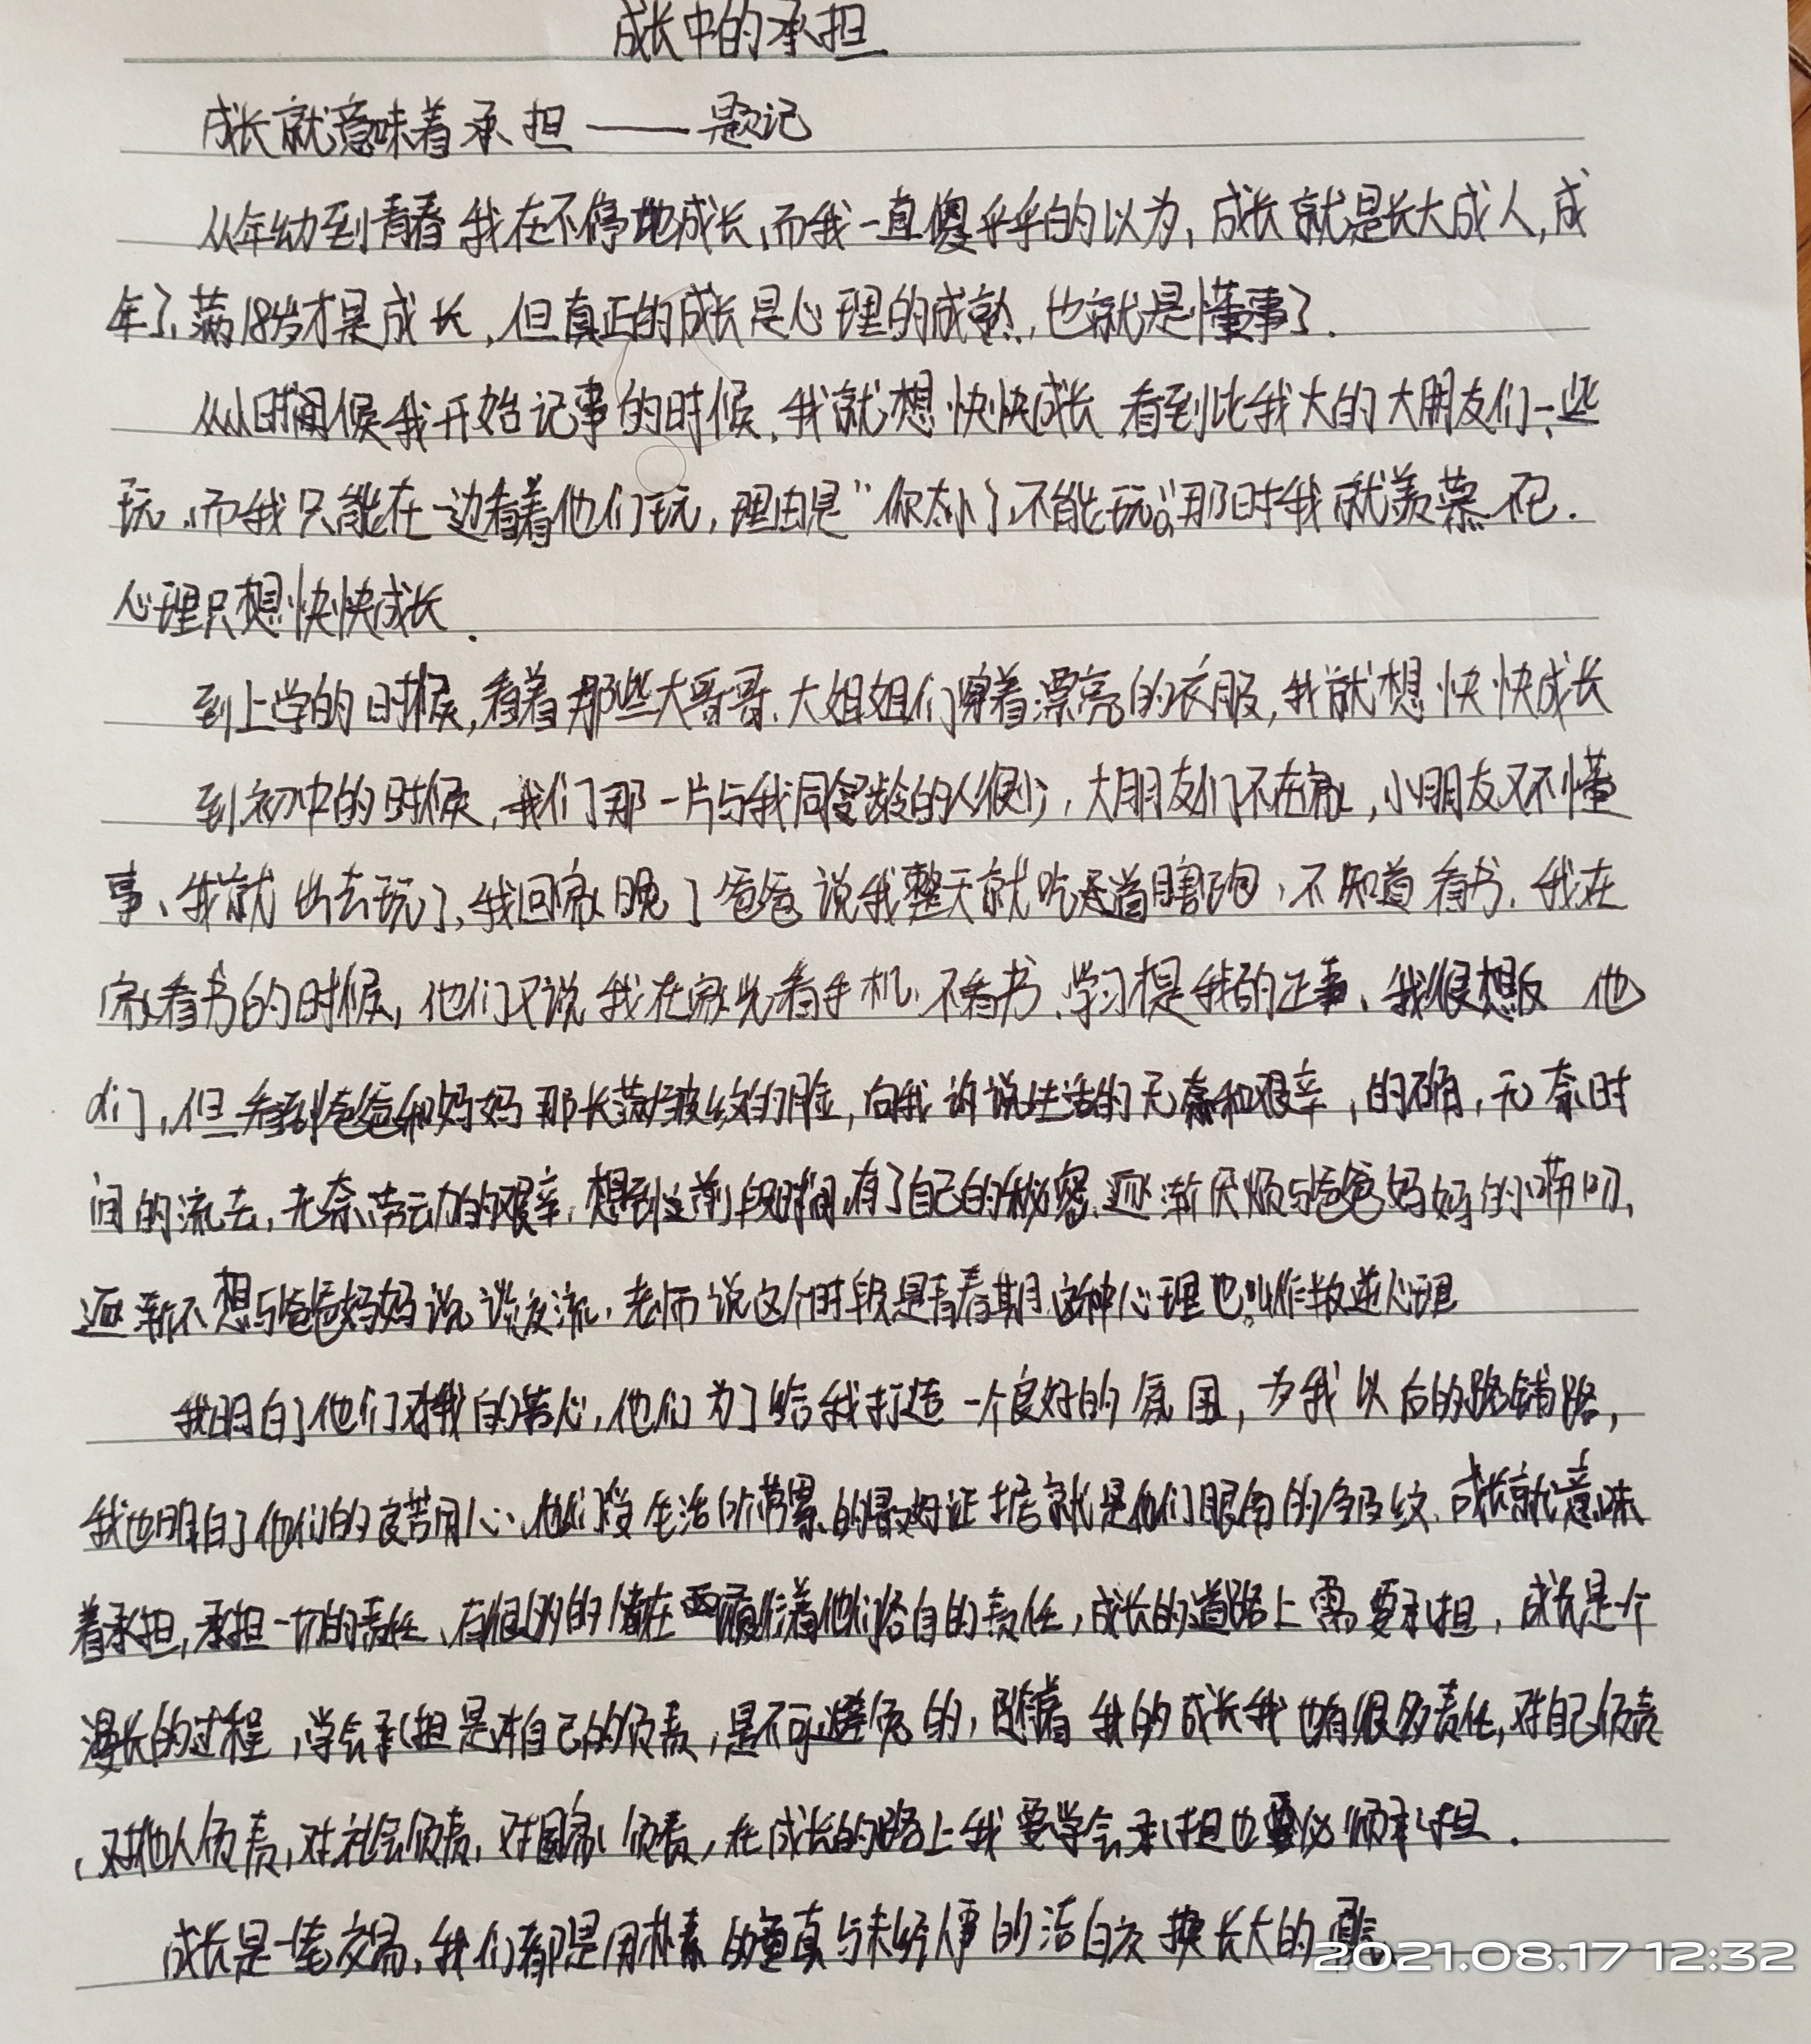 成长中的承担
成长就意味着承担——题记
从年幼到青春我在不停地成长,而我一直傻乎乎的以为,成长就是长大成人,成
年了、满18岁才是成长,但真正的成长是心理的成熟,也就是懂事了.
从从时间候我开始记事的时候,我就想快快成长,看到比我大的大朋友们一些
玩,而我只能在一边看着他们玩,理由是“你太小了,不能玩。”那时我就羡慕不已.
心理只想快快成长.
到上学的时候,看着那些大哥哥、大姐姐们穿着漂亮的衣服,我就想快快成长
到初中的时候,我们那一片与我同龄的人很少,大朋友们不在家,小朋友又不懂
事、我就出去玩了,我回家晚了爸爸说我整天就吃逛瞎跑,不知道看书.我在
家看书的时候,他们又说我在家光看手机,不看书、学习才是我的正事、我很想反 他
们,但看到爸爸和妈妈那长满皱纹的脸,向我诉说生活的无奈和艰辛,的确,无奈时
间的流去,无奈劳动的艰辛,想到之前段时间,有了自己的秘密,逐渐厌烦与爸爸妈妈的唠叨,
逐渐不想与爸爸妈妈说谈交流,老师说这个时段是青春期,这种心理也叫作叛逆心理
我明白了他们对我的苦心,他们为了给我打造一个良好的氛围,为我以后的路铺路,
我也明白了他们的良苦用心,他们受生活所劳累的最好证据就是他们眼角的鱼纹.成长就意味
着承担,承担一切的责任、有很多的 在 着他们各自的责任,成长的道路上需要承担,成长是一个
漫长的过程,学会承担是对自己的负责,是不可避免的,随着我的成长我也有很多责任,对自己负责
、对他人负责,对社会负责,对国家负责,在成长的路上我要学会承担也要必须承担.
成长是一笔交易,我们都是用朴素的童真与未经人事的洁白交换长大的勇气
2021.08.17 12:32